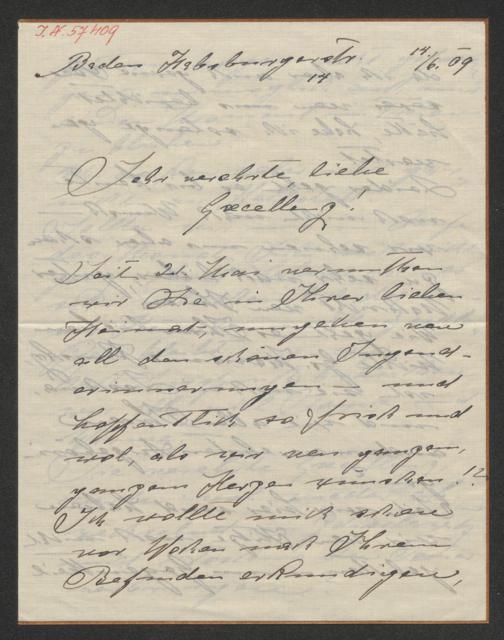 I.N. 57409
Baden Habsburgerstr. 14
14./6. 09
Sehr verehrte, liebe
Excellenz!
Seit 21. Mai vermuthen
wir Sie in Ihrer lieben
Heimat, umgeben von
all den schönen Jugend-
erinnerungen – und
hoffentlich so frisch und
wol, als wir von ganzem,
ganzem Herzen wünschen!?
Ich wollte mich schon
vor Wochen nach Ihrem
Befinden erkundigen,